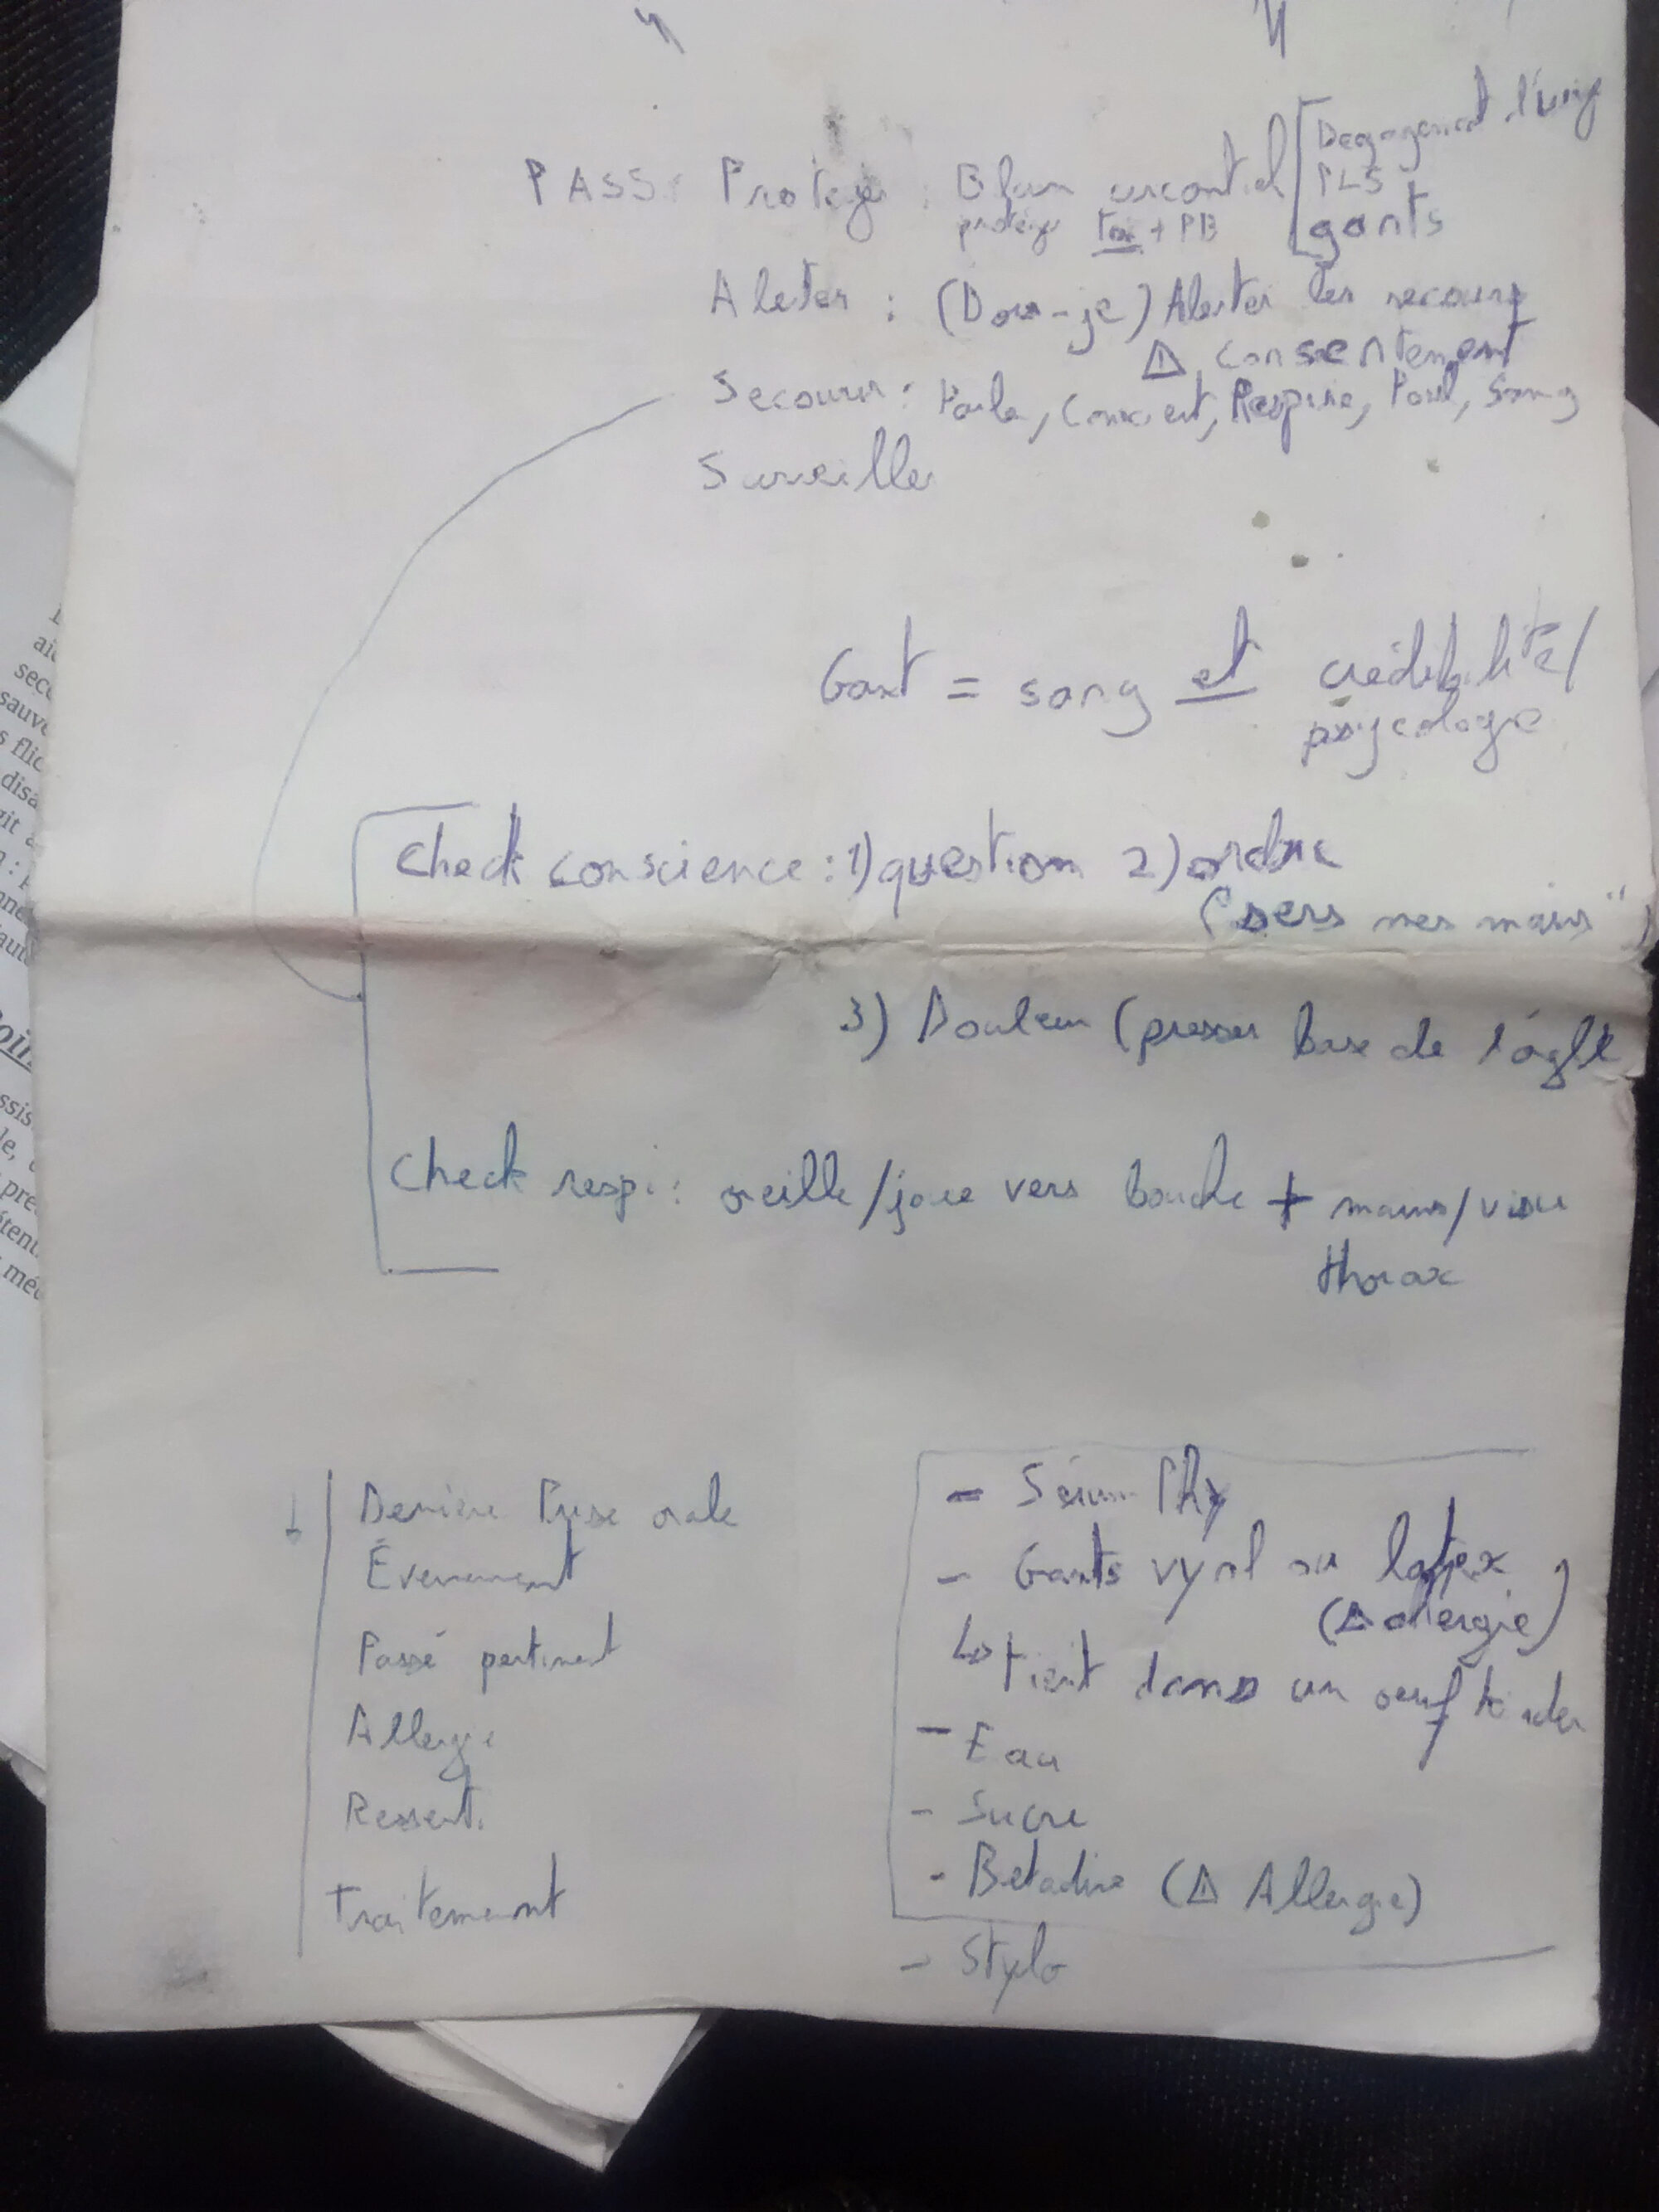 PASS : Proteger : Bilan circontiel [ Degagement d'urg
PLS
protéger Toi + PB gants
Aleter : (Dois-je) Alerter les secours
⚠ Consentement
Secourir : Parle, Conscient, Respire, Pouls, Sang
Surveiller
Gant = sang et crédibilité/
psycologie
Check conscience : 1) question 2) ordre
("sers mes mains")
3) Douleur (presser base de l'ogle
Check respi : oreille/joue vers bouche + mains/visu
thorax
Derniere Prise orale
Évenement
Passé pertinent
Allergie
Ressenti
Traitement
- Sérum Phy
- Gants vynl ou latex
(⚠ allergie)
↳ tient dans un oeuf kinder
- Eau
- Sucre
- Betadine (⚠ Allergie)
- Stylo
ai
seco
sauv
s flic
disa
git